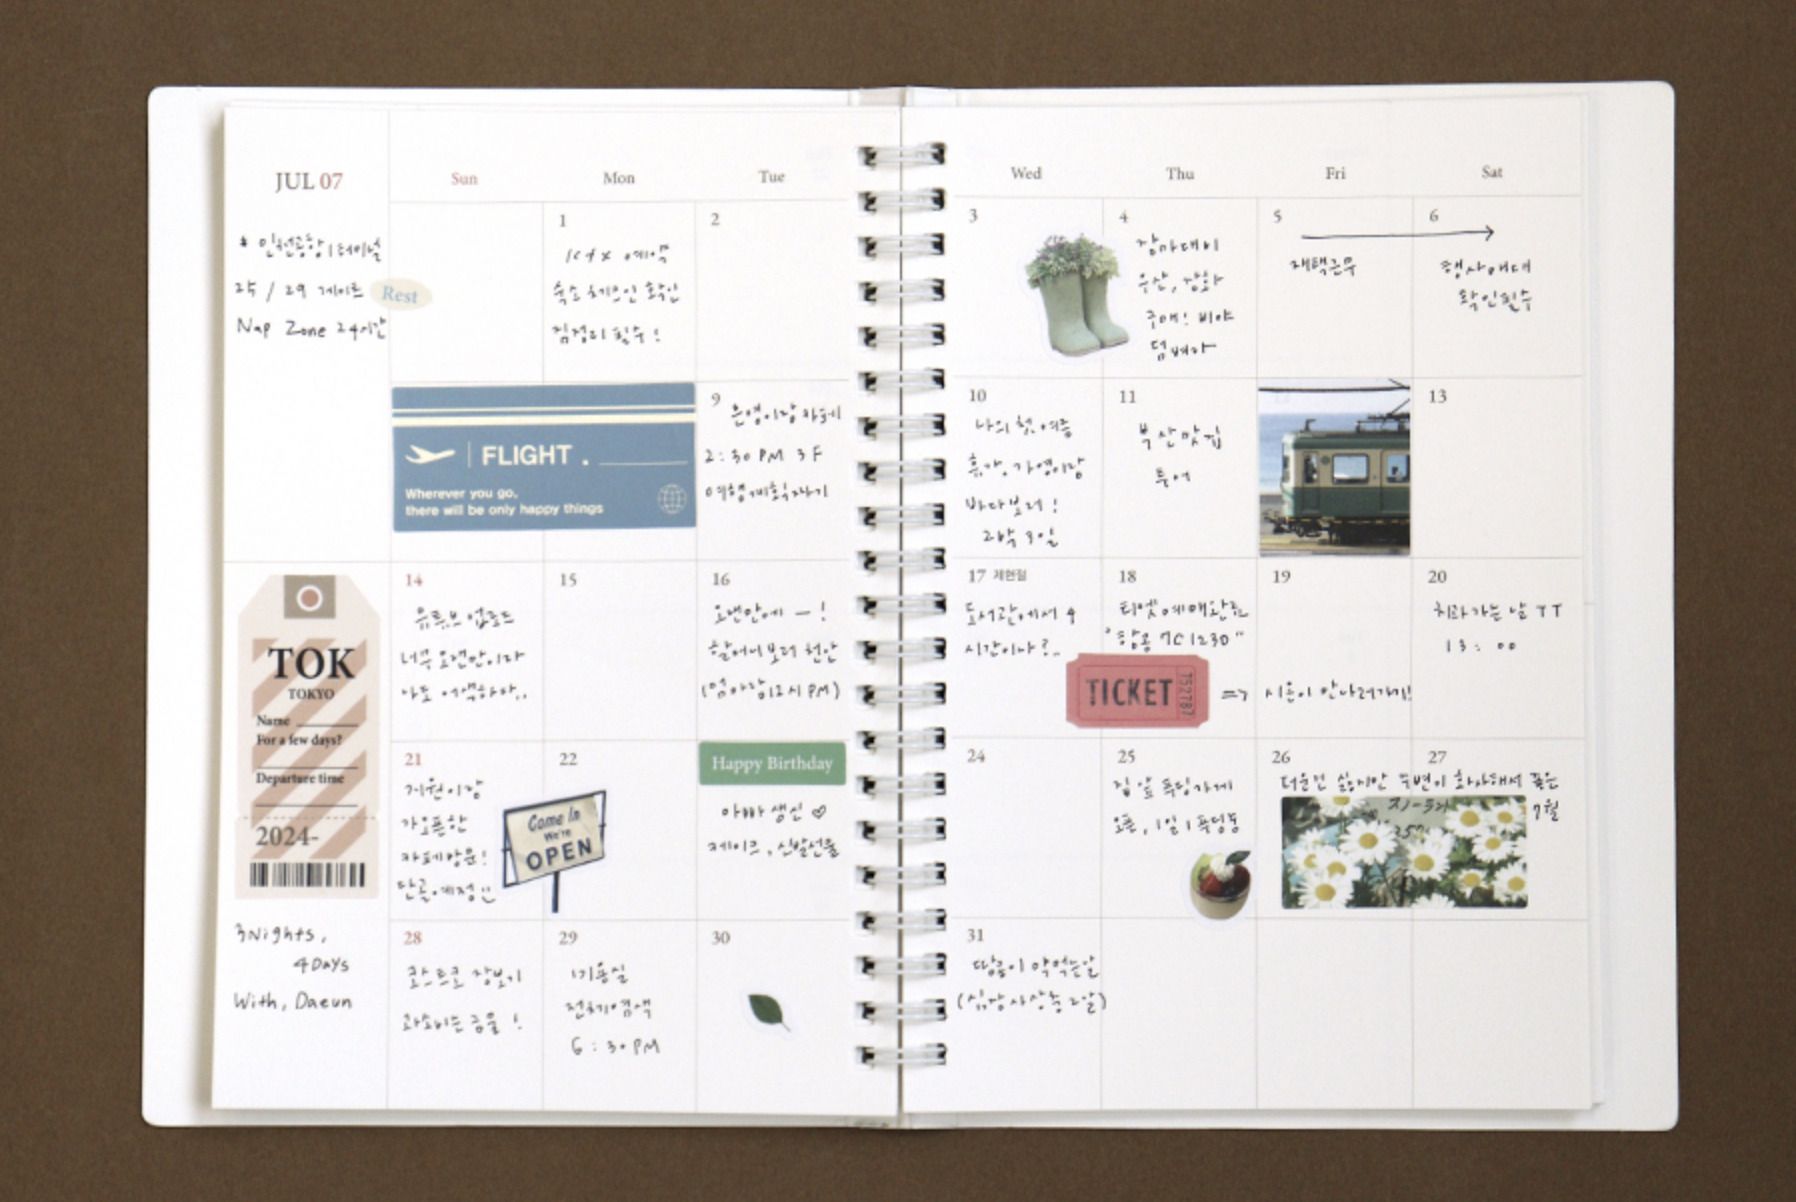 JUL 07
Sun
Mon
Tue
Wed
Thu
Fri
Sat
* 인천공항 1터미널
25 / 29 게이트
Rest
Nap Zone 24시간
1
ktx 예약
숙소 체크인 확인
짐정리 필수!
2
3
4
장마대비
우산, 장화
구매! 비야
덤벼라
5
재택근무
6
행사매대
확인필수
FLIGHT .
Wherever you go,
there will be only happy things
9
은영이랑 카페
2:30 PM 3F
여행계획짜기
10
나의 첫 여름
휴가. 가영이랑
바다보러!
2박 3일
11
부산맛집
투어
13
TOK
TOKYO
Name
For a few days?
Departure time
2024-
3Nights,
4Days
With, Daeun
14
유튜브 업로드
너무 오랜만이라
나도 어색하다..
15
16
오랜만에 ー!
할머니 보러 천안
(엄마랑 12시 PM)
17 제헌절
도서관에서 4
시간이나?..
18
티켓예매완료
"항공 7C1230"
TICKET
752787
19
=> 시은이 만나러가기!
20
치과가는 날 ㅠㅠ
13:00
21
지원이랑
가오픈한
카페방문!
단골예정
22
Come In
We're
OPEN
Happy Birthday
아빠 생신 ♡
케이크, 신발선물
24
25
집 앞 푸딩가게
오픈, 1일 1푸딩
26
27
더운건 싫지만 주변이 화사해서 좋은
7월
28
코스트코 장보기
과소비는 금물!
29
미용실
전체염색
6:30PM
30
31
땅콩이 약먹는날
(심장사상충 2알)